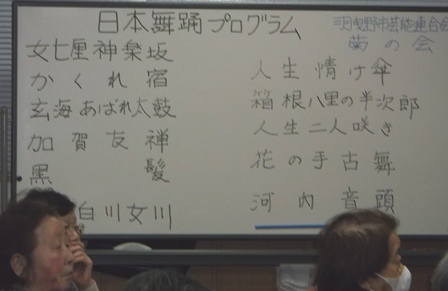 日本舞踊プログラム
羽曳野市芸能連合会
菊の会
女七里神楽坂
かくれ宿
玄海あばれ太鼓
加賀友禅
黒髪
白川女川
人生情け傘
箱根八里の半次郎
人生二人咲き
花の手古舞
河内音頭